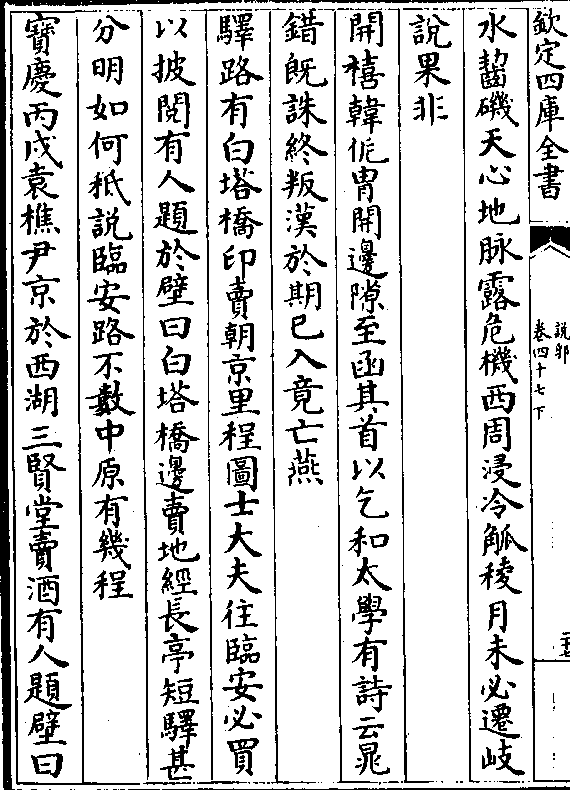 欽定四庫全書
說郛
卷四十七下
水齧磯天心地脉露危機西周浸冷觚稜月未必遷岐
說果非
開禧韓侂胄開邊隙至函其首以乞和太學有詩云晁
錯既誅終叛漢於期已入竟亡燕
驛路有白塔橋印賣朝京里程圖士大夫往臨安必買
以披閱有人題於壁曰白塔橋邊賣地經長亭短驛甚
分明如何秖說臨安路不數中原有幾程
寶慶丙戌袁樵尹京於西湖三賢堂賣酒有人題壁曰